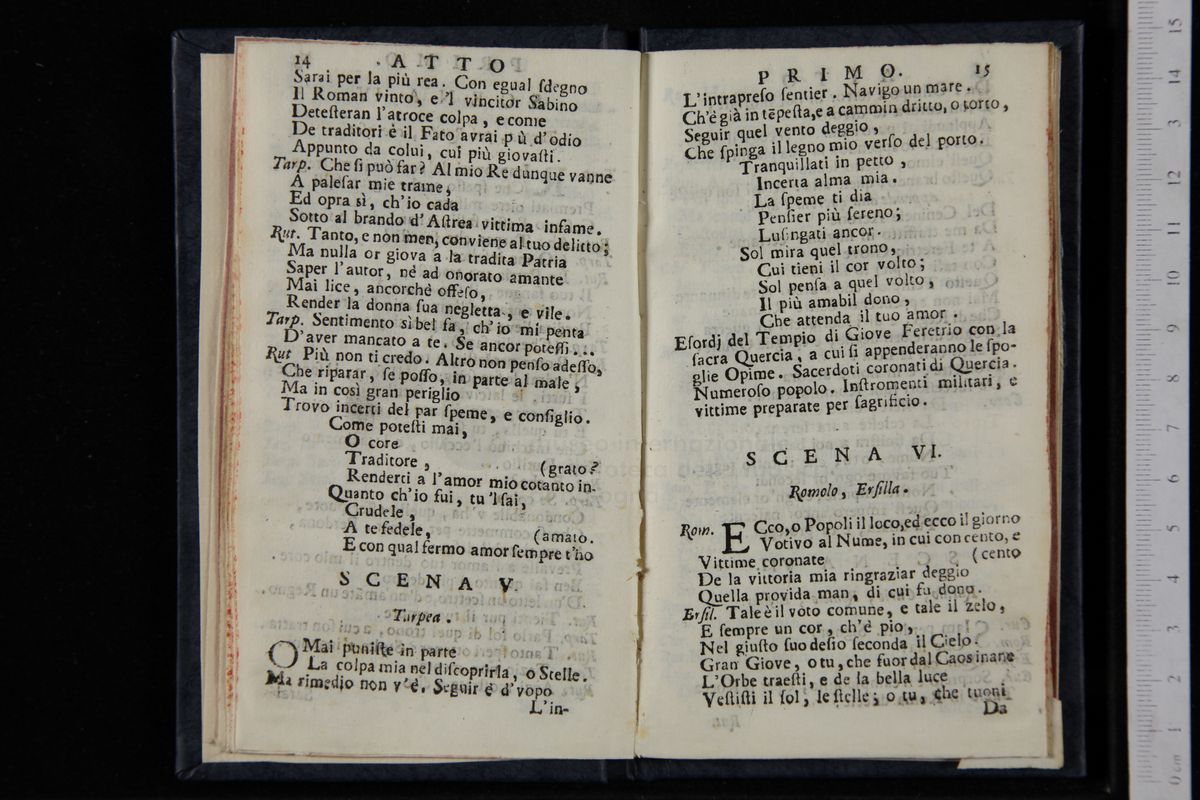 14 ATTO
Sarai per la più rea. Con egual ſdegno
Il Roman vinto, e 'l vincitor Sabino
Deteſteran l'atroce colpa, e come
De traditori è il Fato avrai p ù d'odio
Appunto da colui, cui più giovaſti.
Tarp. Che ſi può far? Al mio Re dunque vanne
A paleſar mie trame,
Ed opra sì, ch'io cada
Sotto al brando d'Aſtrea vittima infame.
Rut. Tanto, e non men, conviene al tuo delitto;
Ma nulla or giova a la tradita Patria
Saper l'autor, nè ad onorato amante
Mai lice, ancorchè offeſo,
Render la donna ſua negletta, e vile.
Tarp. Sentimento sì bel fa, ch'io mi penta
D'aver mancato a te. Se ancor poteſſi...
Rut Più non ti credo. Altro non penſo adeſſo,
Che riparar, ſe poſſo, in parte al male,
Ma in così gran periglio
Trovo incerti del par ſpeme, e conſiglio.
Come poteſti mai,
O core
Traditore, (grato?
Renderti a l'amor mio cotanto in-
Quanto ch'io fui, tu 'l ſai,
Crudele,
A te fedele, (amato.
E con qual fermo amor ſempre t'hò
SCENA V.
Tarpea.
OMai puniſte in parte
La colpa mia nel diſcoprirla, o Stelle.
Ma rimedio non v'è. Seguir è d'vopo
L'in-
PRIMO. 15
L'intrapreſo ſentier. Navigo un mare.
Ch'è già in tēpeſta, e a cammin dritto, o torto,
Seguir quel vento deggio,
Che ſpinga il legno mio verſo del porto.
Tranquillati in petto,
Incerta alma mia.
La ſpeme ti dia
Penſier più ſereno;
Luſingati ancor.
Sol mira quel trono,
Cui tieni il cor volto;
Sol penſa a quel volto,
Il più amabil dono,
Che attenda il tuo amor.
Eſordj del Tempio di Giove Feretrio con la
ſacra Quercia, a cui ſi appenderanno le ſpo-
glie Opime. Sacerdoti coronati di Quercia.
Numeroſo popolo. Inſtromenti militari, e
vittime preparate per ſagrificio.
SCENA VI.
Romolo, Erſilla.
Rom. ECco, o Popoli il loco, ed ecco il giorno
Votivo al Nume, in cui con cento, e
Vittime coronate (cento
De la vittoria mia ringraziar deggio
Quella provida man, di cui fu dono.
Erſil. Tale è il voto comune, e tale il zelo,
E ſempre un cor, ch'è pio,
Nel giuſto ſuo deſio ſeconda il Cielo.
Gran Giove, o tu, che fuor dal Caos inane
L'Orbe traeſti, e de la bella luce
Veſtiſti il ſol, le ſtelle; o tu, che tuoni
Da